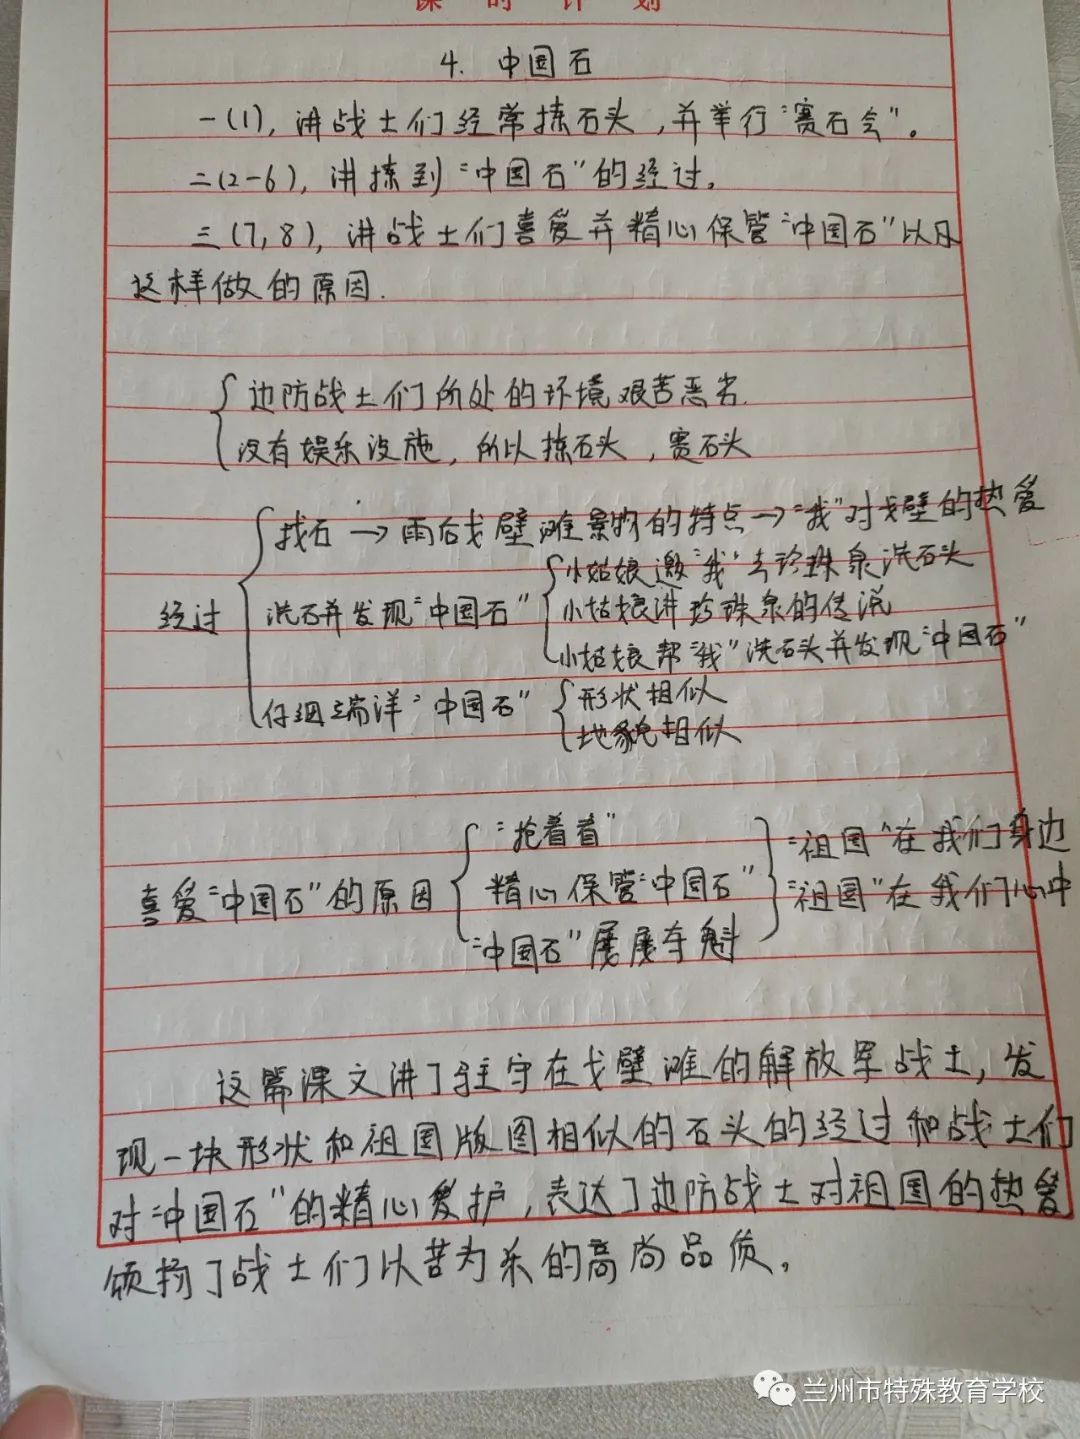 课时计划
4. 中国石
一(1), 讲战士们经常拣石头, 并举行"赛石会"。
二(2-6), 讲拣到"中国石"的经过。
三(7,8), 讲战士们喜爱并精心保管"中国石"以及
这样做的原因.
边防战士们所处的环境艰苦恶劣.
没有娱乐设施, 所以拣石头, 赛石头
找石→雨后戈壁滩景物的特点→"我"对戈壁的热爱
小姑娘邀"我"去珍珠泉洗石头
经过 洗石并发现"中国石" 小姑娘讲珍珠泉的传说
小姑娘帮"我"洗石头并发现"中国石"
仔细端详"中国石" 形状相似
地貌相似
"抢着看" "祖国"在我们身边
喜爱"中国石"的原因 精心保管"中国石" "祖国"在我们心中
"中国石"屡屡夺魁
这篇课文讲了驻守在戈壁滩的解放军战士, 发
现一块形状和祖国版图相似的石头的经过和战士们
对"中国石"的精心爱护, 表达了边防战士对祖国的热爱
颂扬了战士们以苦为乐的高尚品质。
兰州市特殊教育学校